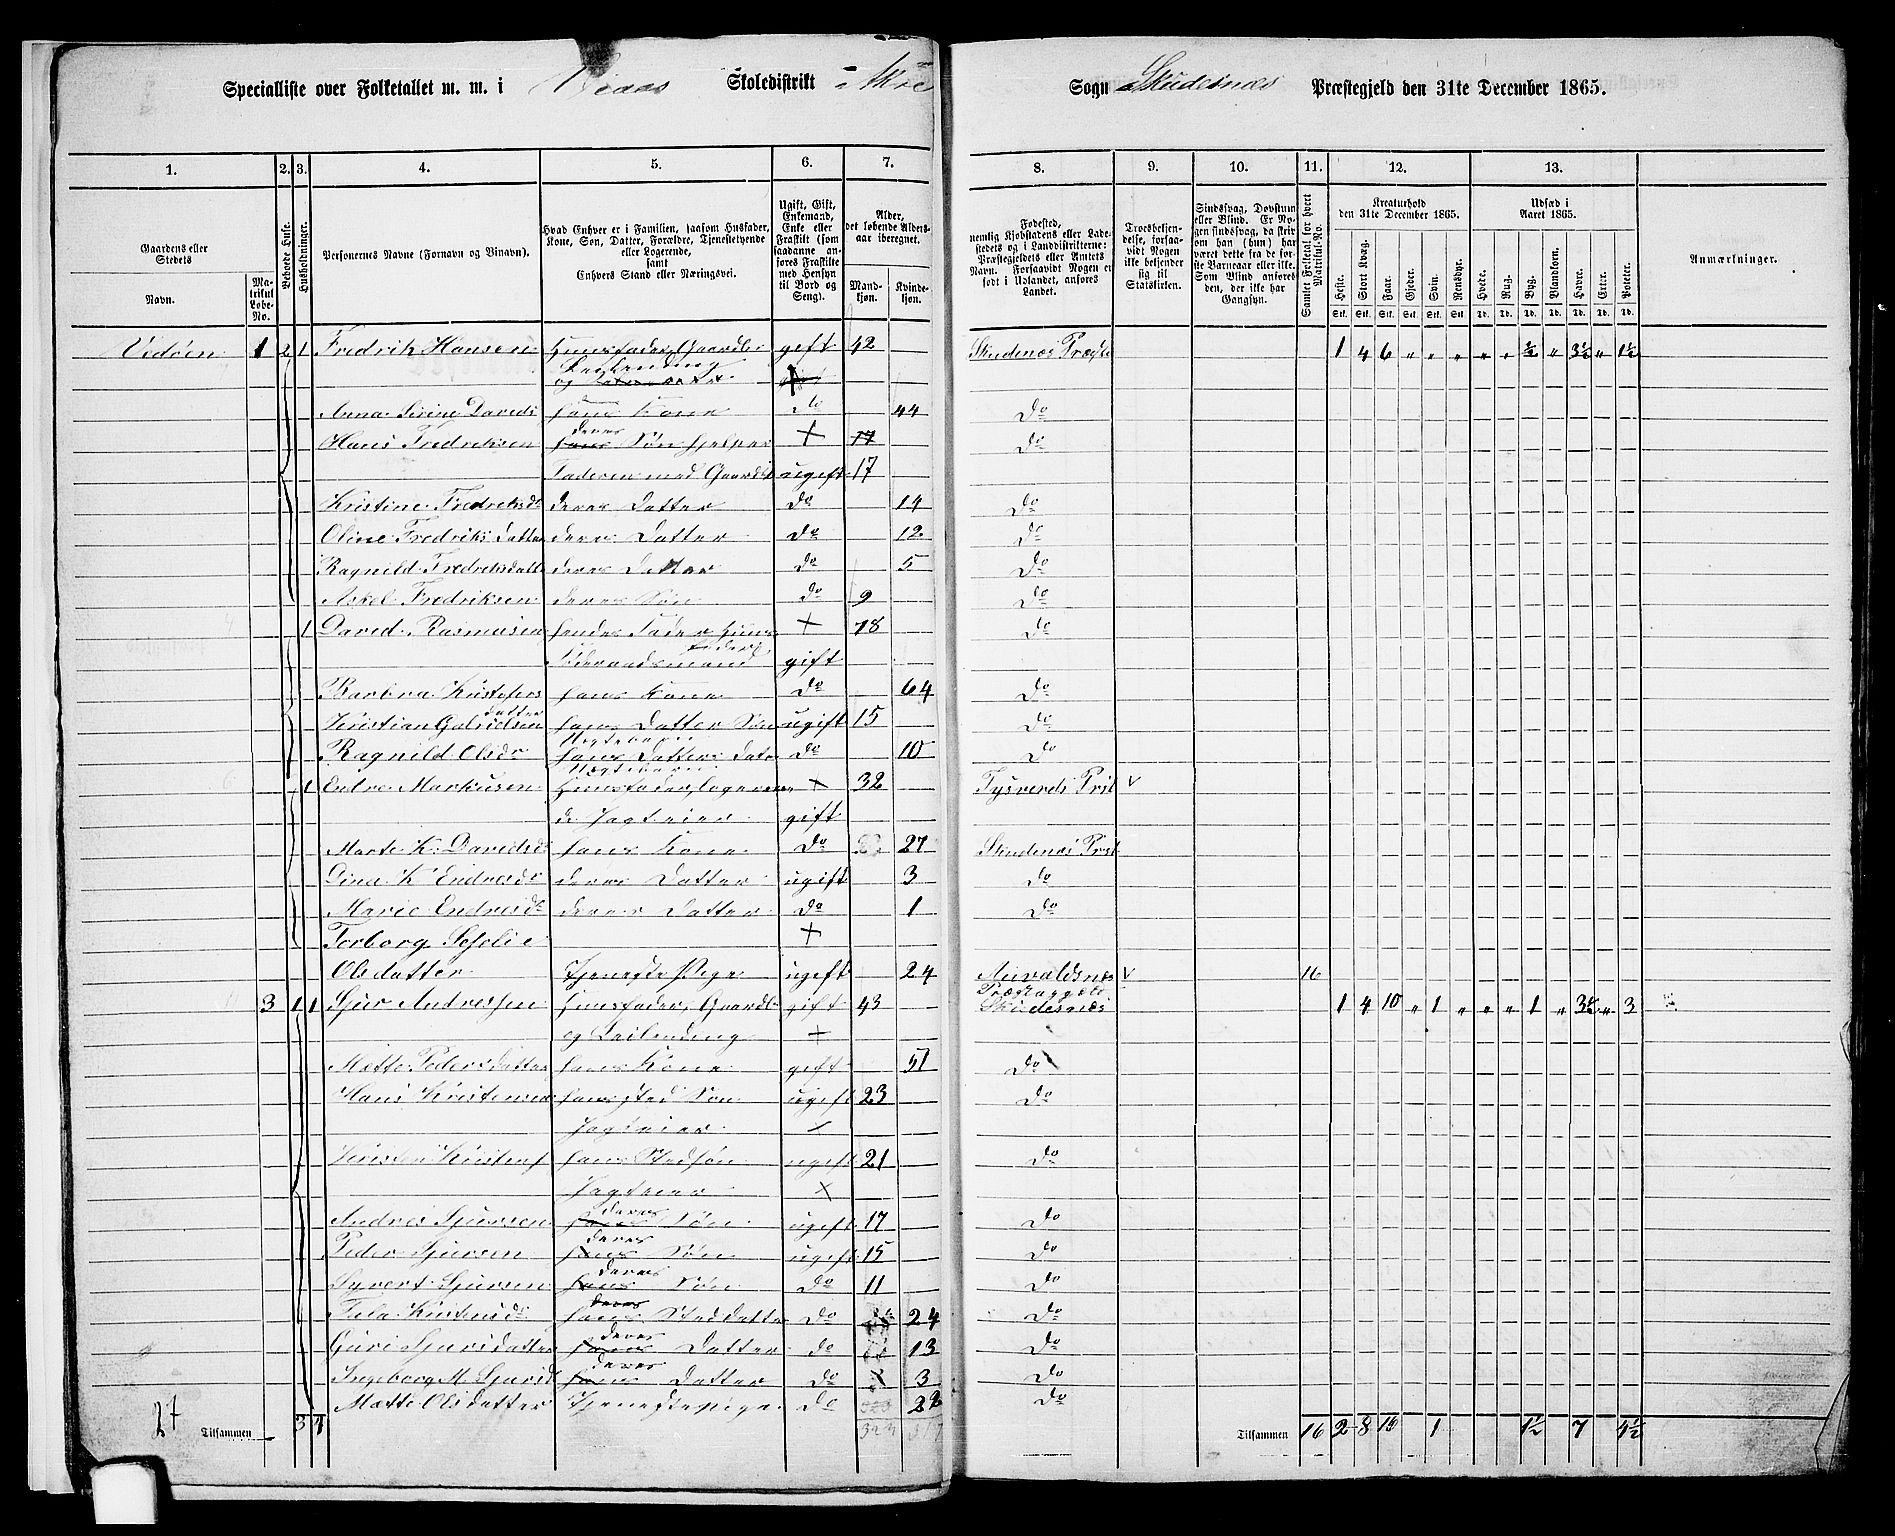 Specialliste over Folketallet m. m. i Skoledistrikt
Sogn Skudesnæs Præstegjeld den 31te December 1865.
1. 2. 3. 4. 5. 6. 7. 8. 9. 10. 11. 12. 13.
Gaardens eller Stedets
Navn.
Matrikul Løbe-No.
Beboede Huse.
Husholdninger.
Personernes Navne (Fornavn og Binavn).
Hvad Enhver er i Familien, saasom Husfader, Kone, Søn, Datter, Forældre, Tjenestetyende eller Logerende, samt Enhvers Stand eller Næringsvei.
Ugift, Gift, Enkemand, Enke eller Fraskilt (som saadanne anføres Fraskilte med Hensyn til Bord og Seng).
Alder, det løbende Aldersaar iberegnet.
Mandkjøn. Kvindekjøn.
Fødested, nemlig Kjøbstadens eller Ladestedets og i Landdistrikterne: Præstegjeldets eller Amtets Navn. Forsaavidt Nogen er født i Udlandet, anføres Landet.
Troesbekjendelse, forsaavidt Nogen ikke bekjender sig til Statskirken.
Sindssvag, Døvstum eller Blind. Er Nogen sindssvag, da skrives om han (hun) har været dette fra de første Barneaar eller ikke. Som Blind anføres den, der ikke har Gangsyn.
Samlet Folketal for hvert Matrikul-No.
Kreaturhold den 31te December 1865.
Heste. Stort Kvæg. Faar. Gjeder. Svin. Rensdyr.
Udsæd i Aaret 1865.
Hvede. Rug. Byg. Blandkorn. Havre. Erter. Poteter.
Anmærkninger.
Vedøen 1 2 1 Fredrik Hansen Huusfader, Gaardb. gift 42 Skudenæs Præste 1 4 6 " " " " " ½ " 3½ " 1½
og Leilending
Anna Serine Davids hans Kone do 44 Do
Hans Fredriksen deres Søn hjelper + 17 Do
Faderen med Gaardsb ugift 17
Kristine Fredriksd. deres Datter do 14 Do
Oline Fredriks datter deres Datter do 12 Do
Ragnild Fredriksdatt deres Datter do 5 Do
Askel Fredriksen deres Søn do 9 Do
1 David Rasmusen hendes Fader Huus + 78 Do
fader
Føderaadsmand gift
Barbra Kristofers hans Kone Do 64 Do
datter
Kristian Gabrielsen hans Datter Søn ugift 15 Do
Ragnild Olsdr hans Datters datr do 10 Do
1 Endre Markusen Huusfader, logeren + 32 Tysværds Prst v
de Jagteier gift
Marte K. Davidsd. hans Kone Do 27 Skudenæs Prst
Gina K. Endresdr deres Datter ugift 3 do
Marie Endresd. deres Datter Do 1 Do
Torborg Sefelie +
Olsdatter Tjeneste Pige ugift 24 Auvaldsnes v 16
Præstegjeld
3 1 1 Sjur Andressen Huusfader, Gaardb. gift 43 Skudesnæs 1 4 10 " 1 " " " 1 " 3½ " 3
og Leilending +
Mætte Pedersdatter hans Kone gift 51 Do
Hans Kristensen hans sted Søn ugift 23 Do
Jagteier
Kristen Kristens hans Stedsøn ugift 21 Do
Jagteier +
Andres Sjursen deres Søn ugift 17 Do
Peder Sjursen deres Søn ugift 15 Do
Syvert Sjursen deres Søn Do 11 Do
Tala Kristensdr hans Steddatter Do 24 Do
Guri Sjursdatter deres Datter do 13 Do
Ingeborg M. Sjursd deres Datter Do 3 Do
Mætte Olsdatter Tjenestepige do 22 Do
27 Tilsammen 3 4
Tilsammen 16 2 8 16 1 1½ 7 4½